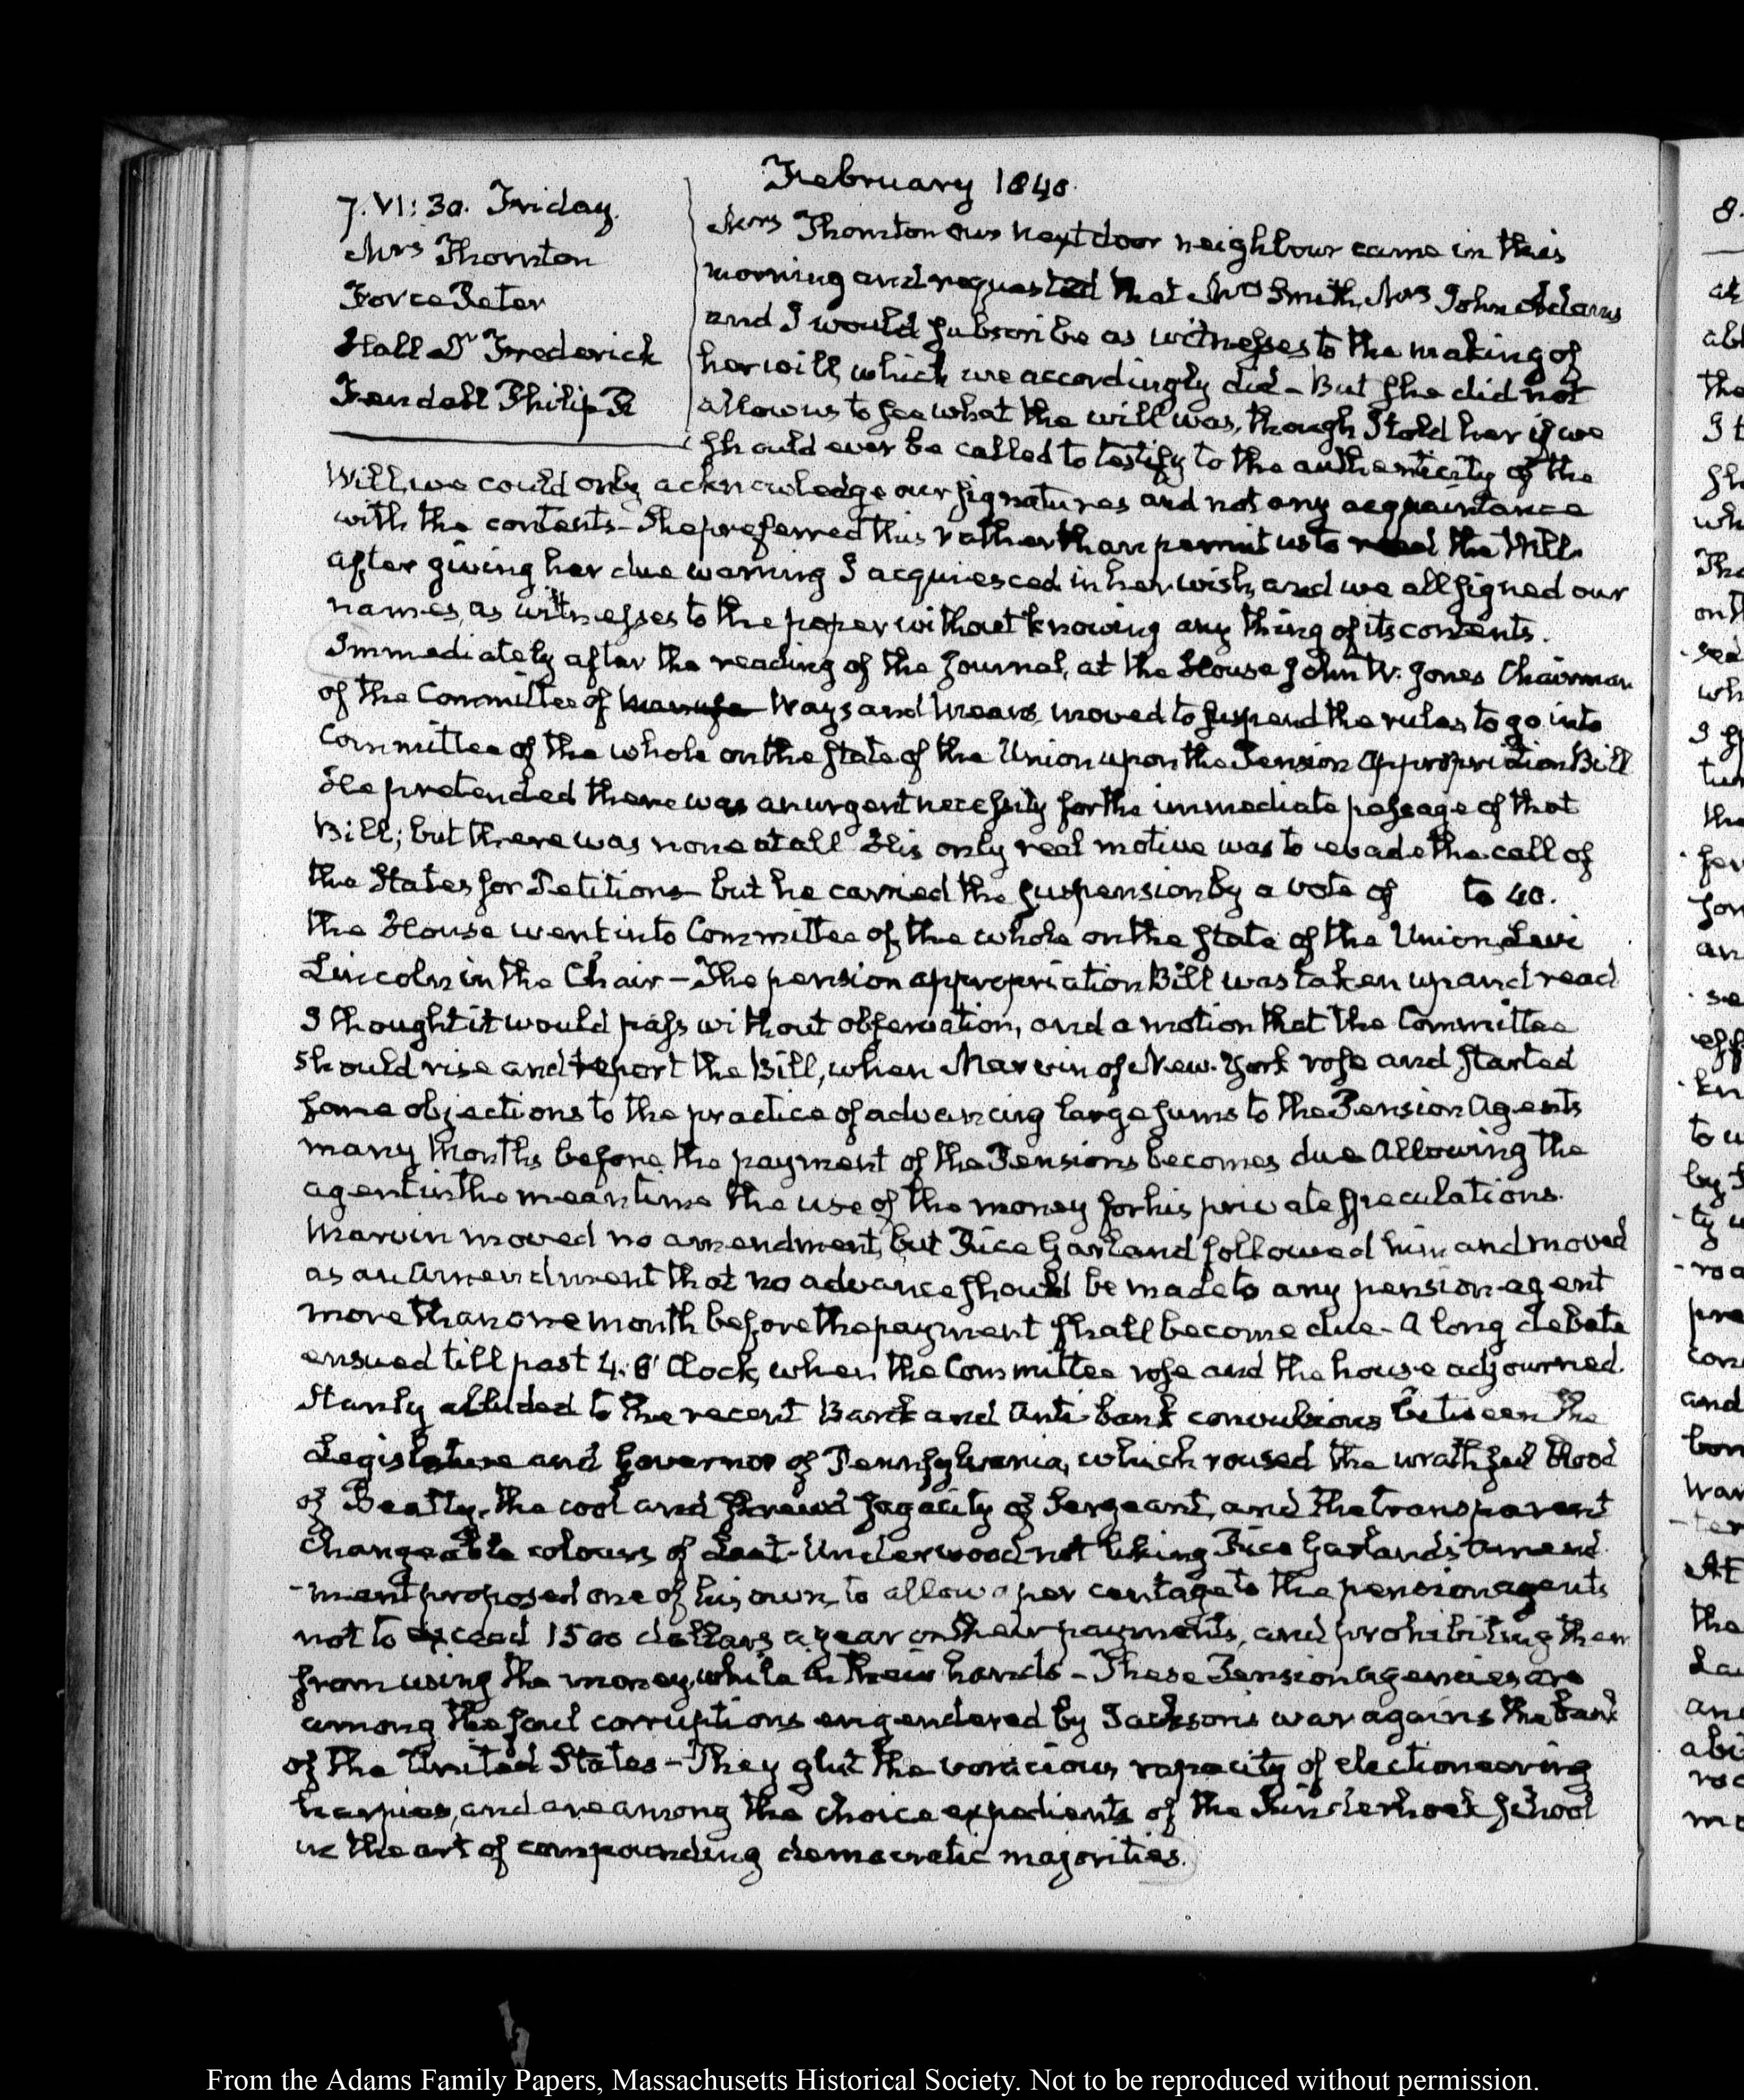 February 1840.
7. VI:30. Friday.
Mrs Thornton
Force Peter
Hall Dr Frederick
Fendall Philip R
Mrs Thornton our next door neighbour came in this
morning and requested that Mrs Smith, Mrs John Adams
and I would subscribe as witnesses to the making of
her will, which we accordingly did – But she did not
allow us to see what the will was, though I told her if we
should ever be called to testify to the authenticity of the
Will, we could only acknowledge our signatures and not any acquaintance
with the contents – She preferred this rather than permit us to read the Will.
after giving her due warning I acquiesced in her wish, and we all signed our
names, as witnesses to the paper without knowing any thing of its contents.
Immediately after the reading of the Journal, at the House John W. Jones Chairman
of the Committee of Ways and Means, moved to suspend the rules to go into
Committee of the whole on the state of the Union upon the Pension Appropriation Bill
He pretended there was an urgent necessity for the immediate passage of that
Bill; but there was none at all His only real motive was to evade the call of
the States for Petitions – but he carried the suspension by a vote of to 40.
the House went into Committee of the whole on the state of the Union, Levi
Lincoln in the Chair – The pension appropriation Bill was taken up and read
I thought it would pass without observation, and a motion that the Committee
should rise and report the Bill, when Marvin of New-York rose and started
some objections to the practice of advancing large sums to the Pension Agents
many months before the payment of the Pensions becomes due Allowing the
agent in the mean time the use of the money for his private speculations.
Marvin moved no amendment, but Rice Garland followed him and moved
as an Amendment that no advance should be made to any pension-agent
more than one month before the payment shall become due – A long debate
ensued till past 4. O'Clock, when the Committee rose and the house adjourned.
Stanly alluded to the recent Bank and Anti-bank convulsions between the
Legislature and Governor of Pennsylvania, which roused the wrathful blood
of Beatty, the cool and shrewd sagacity of Sergeant, and the transparent
changeable colours of Leet – Underwood not liking Rice Garland's Amend
-ment proposed one of his own, to allow a per centage to the pension agents
not to exceed 1500 dollars a year on their payments, and prohibiting them
from using the money, while in their hands – These Pension agencies are
among the foul corruptions engendered by Jackson's war agains the bank
of the United States – They glut the voracious rapacity of electioneering
harpies, and are among the choice expedients of the Kinderhook school
in the art of compounding democratic majorities.
From the Adams Family Papers, Massachusetts Historical Society. Not to be reproduced without permission.